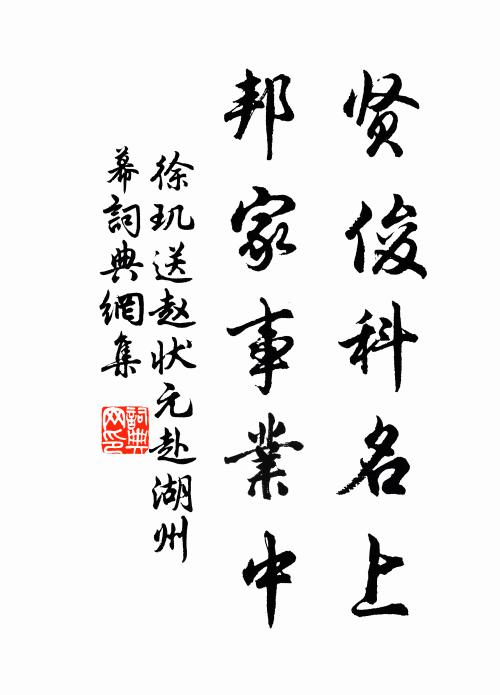 贤俊科名上
邦家事業中
徐玑送赵状元赴湖州
幕詞典網集
詞典网印